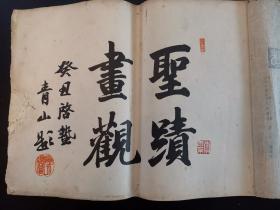 聖蹟
畫觀
癸丑啓蟄
青山題